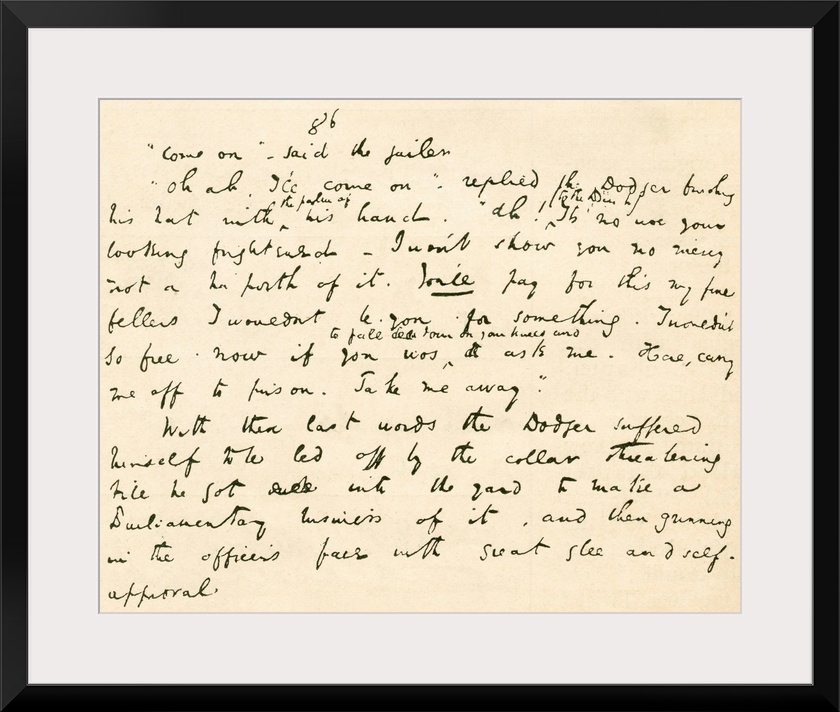 86
"Come on" - said the jailer
"Oh ah, I'll come on" - replied the Dodger brushing
the palm of
to the Bench
his hat with his hand. "Ah! It's no use your
looking frightened - I won't show you no mercy
not a ha'porth of it. You'll pay for this my fine
fellers I wouldn't be you for something. I wouldn't
to fall down on your knees and
go free now if you wos, ask me. Here, carry
me off to prison. Take me away".
With these last words the Dodger suffered
himself to be led off by the collar threatening
till he got into the yard to make a
Parliamentary business of it, and then grinning
in the officer's face with great glee and self-
approval.